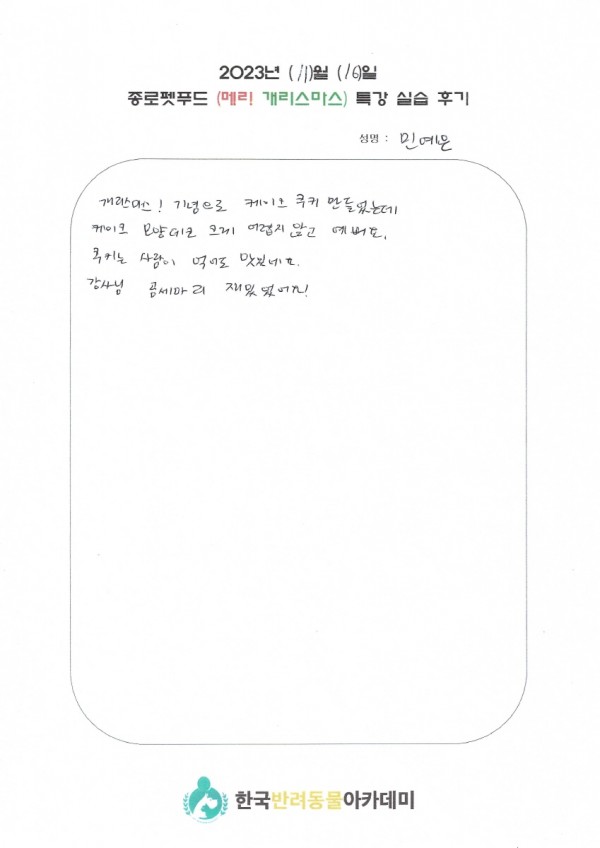 2023년 (11)월 (16)일
종로펫푸드 (메리! 개리스마스) 특강 실습 후기
성명 : 민예은
개리스마스! 기념으로 케이크 쿠키 만들었는데
케이크 모양데코 크게 어렵지않고 예뻐요.
쿠키는 사람이 먹어도 맛있네요.
강사님 곰세마리 재밌었어요!
한국반려동물아카데미